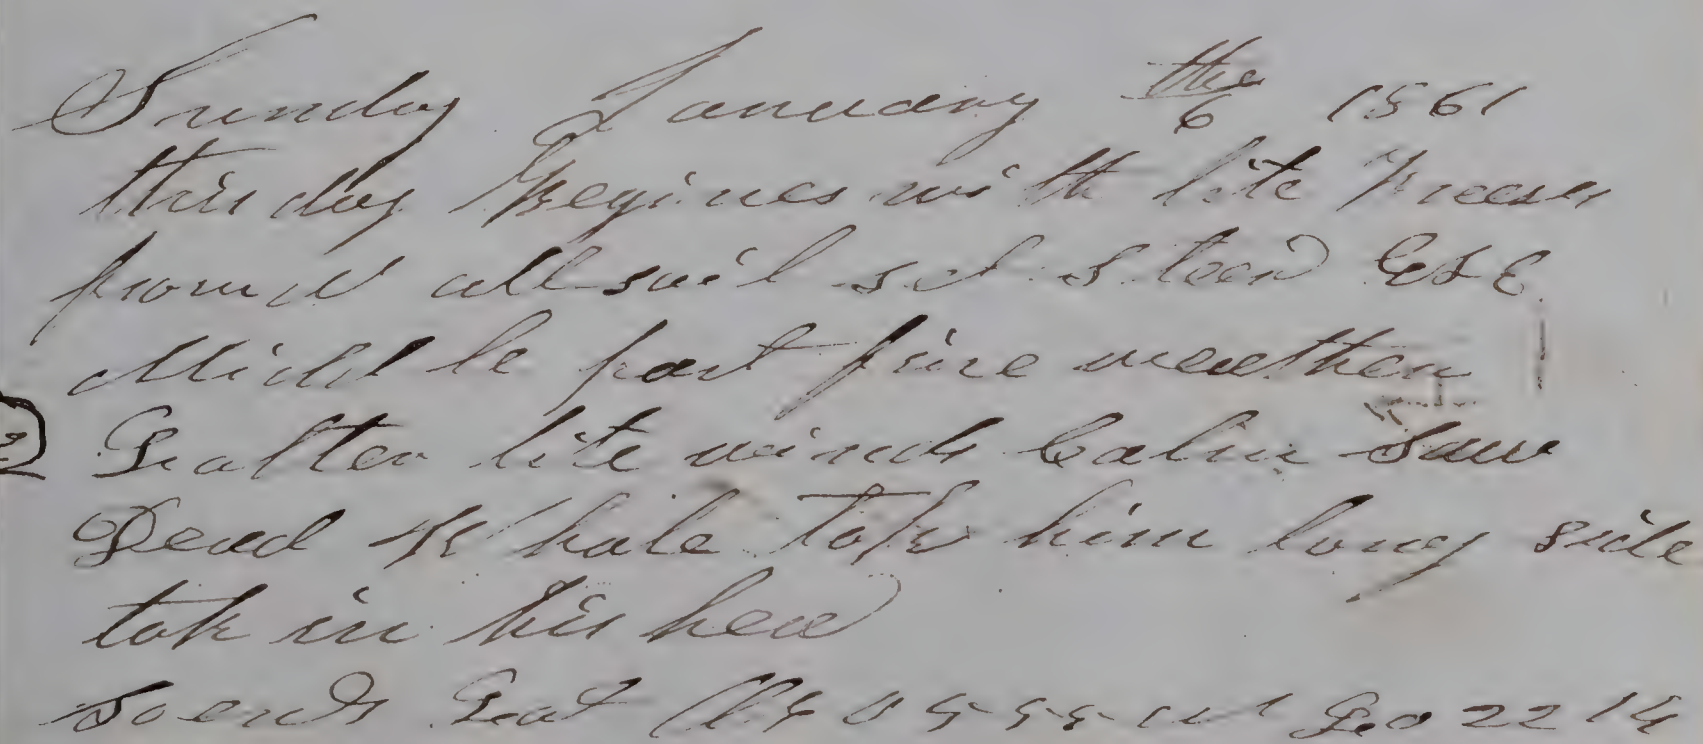 Sunday January the 6 1861
this day Begines with lite Breses
from W all sail set Steerd ESE
Middle part fine weather
Latter lite winds Calm Saw
Dead Whale tok him long side
tok in his hed
so ends Lat Lon 22 14